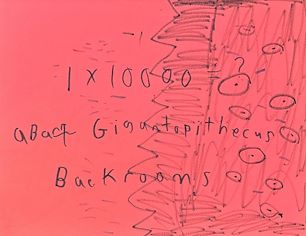 1 x 10000 = ?
Gigantopithecus
Backrooms